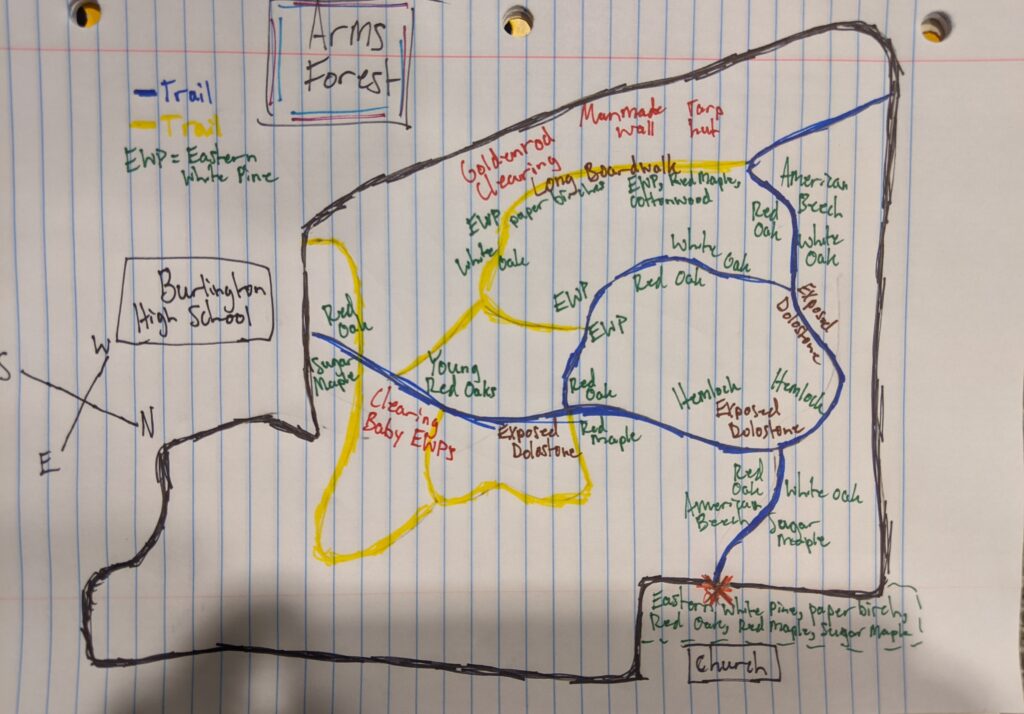 Arms
Forest
Trail
Trail
EWP = Eastern
White Pine
Manmade
Wall
Tarp
hut
Goldenrod
Clearing
Long Boardwalk
EWP
paper birches
EWP, Red Maples,
Cottonwood
American
Beech
Red
Oak
White
Oak
White
Oak
White
Oak
Red Oak
Exposed
Dolostone
EWP
EWP
Burlington
High School
S
W
N
E
Red
Oak
Sugar
Maple
Young
Red Oaks
Clearing
Baby EWPs
Exposed
Dolostone
Red
Oak
Red
Maple
Hemlock
Hemlock
Exposed
Dolostone
Red
Oak
White Oak
American
Beech
Sugar
Maple
Eastern White Pine, paper birch,
Red Oak, Red Maple, Sugar Maple
Church